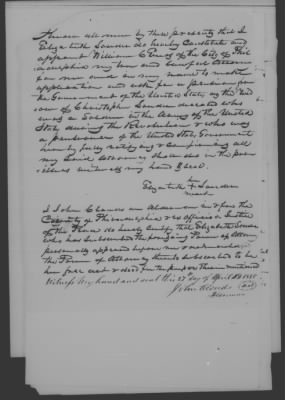 Know all men by these presents that I
Elizabeth Sander do hereby Constitute and
appoint William C. of the City of Phil
adelphia my true and lawful Attorney
for me and in my name to make
application and ask for a pension from
the Government of the United States as the Wid
ow of Christopher Sander deceased who
was a Soldier in the Army of the United
States during the Revolution & who was
a pensioner of the United States Government
hereby fully ratifying & confirming all
my said Attorney shall do in the prem
ises witness my hand & seal
her
Elizabeth + Sander
mark
I John Clouds an Alderman in & for the
County of Philadelphia & ex officio a Justice
of the Peace do hereby Certify that Elizabeth Sander
who has Subscribed the foregoing Power of Attorney
personally appeared before me & acknowledged
the Power of Attorney thereto Subscribed to be
her free act & deed for the purpose therein mentioned
Witness my hand and seal this 27th day of April AD
John Clouds
Alderman